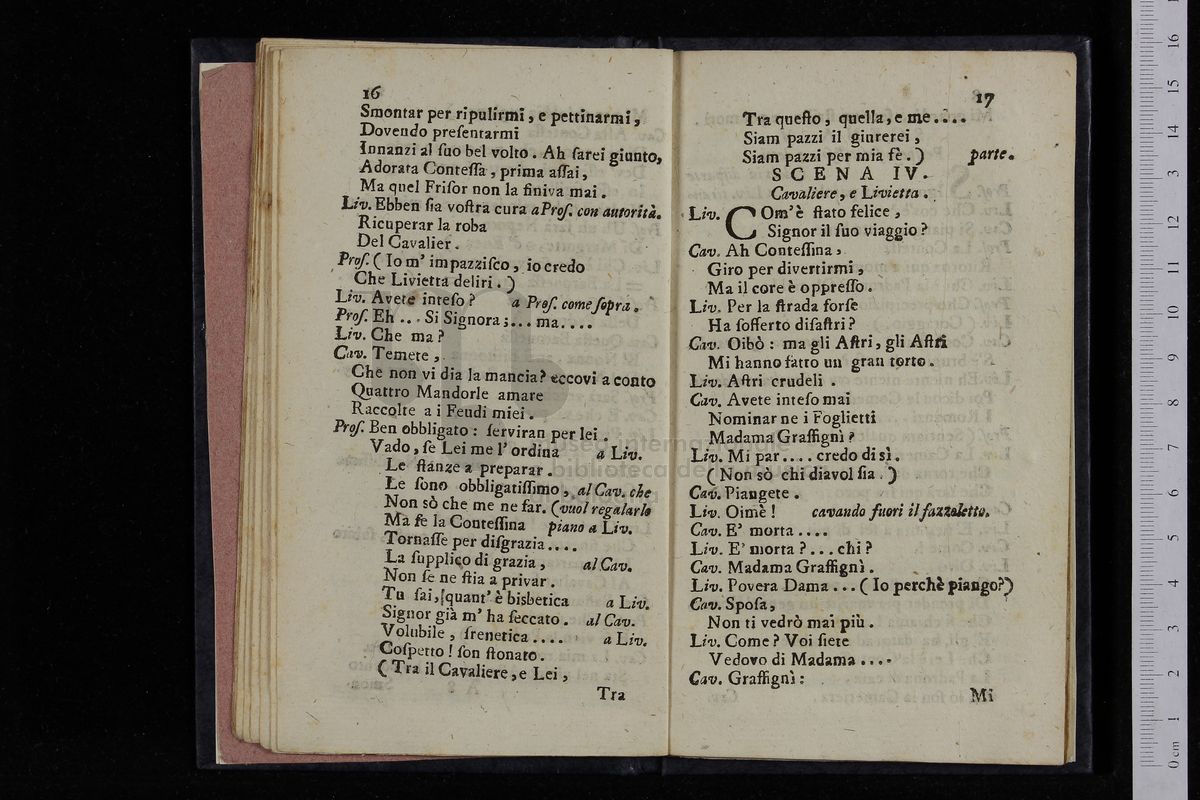 16
Smontar per ripulirmi, e pettinarmi,
Dovendo preſentarmi
Innanzi al ſuo bel volto. Ah ſarei giunto,
Adorata Conteſſa, prima aſſai,
Ma quel Friſor non la finiva mai.
Liv. Ebben ſia voſtra cura a Proſ. con autorità.
Ricuperar la roba
Del Cavalier.
Proſ. ( Io m' impazziſco, io credo
Che Livietta deliri. )
Liv. Avete inteſo? a Proſ. come ſopra.
Proſ. Eh... Si Signora;... ma....
Liv. Che ma?
Cav. Temete,
Che non vi dia la mancia? eccovi a conto
Quattro Mandorle amare
Raccolte a i Feudi miei.
Proſ. Ben obbligato: ſerviran per lei.
Vado, ſe Lei me l' ordina a Liv.
Le ſtanze a preparar.
Le ſono obbligatiſſimo, al Cav. che
Non sò che me ne far. (vuol regalarlo
Ma ſe la Conteſſina piano a Liv.
Tornaſſe per diſgrazia....
La ſupplico di grazia, al Cav.
Non ſe ne ſtia a privar.
Tu ſai, quant' è bisbetica a Liv.
Signor già m' ha ſeccato. al Cav.
Volubile, frenetica.... a Liv.
Coſpetto! ſon ſtonato.
( Tra il Cavaliere, e Lei,
Tra
17
Tra queſto, quella, e me....
Siam pazzi il giurerei,
Siam pazzi per mia fè. ) parte.
SCENA IV.
Cavaliere, e Livietta.
Liv. COm'è ſtato felice,
Signor il ſuo viaggio?
Cav. Ah Conteſſina,
Giro per divertirmi,
Ma il core è oppreſſo.
Liv. Per la ſtrada forſe
Ha ſofferto diſaſtri?
Cav. Oibò: ma gli Aſtri, gli Aſtri
Mi hanno fatto un gran torto.
Liv. Aſtri crudeli.
Cav. Avete inteſo mai
Nominar ne i Foglietti
Madama Graffignì?
Liv. Mi par.... credo di sì.
( Non sò chi diavol ſia. )
Cav. Piangete.
Liv. Oimè! cavando fuori il fazzoletto.
Cav. E' morta....
Liv. E' morta?... chi?
Cav. Madama Graffignì.
Liv. Povera Dama... ( Io perchè piango?)
Cav. Spoſa,
Non ti vedrò mai più.
Liv. Come? Voi ſiete
Vedovo di Madama....
Cav. Graffignì:
Mi